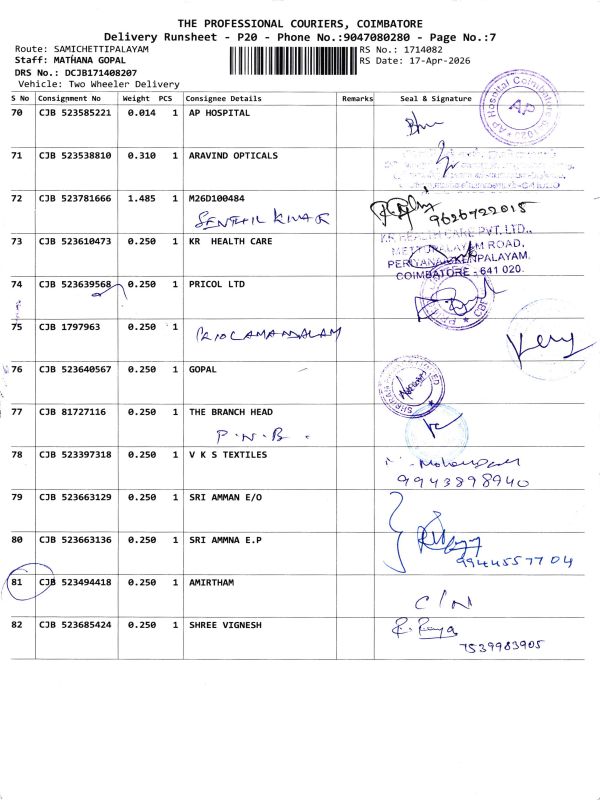 THE PROFESSIONAL COURIERS, COIMBATORE
Delivery Runsheet - P20 - Phone No.:9047080280 - Page No.:7
Route: SAMICHETTIPALAYAM RS No.: 1714082
Staff: MATHANA GOPAL RS Date: 17-Apr-2026
DRS No.: DCJB171408207
Vehicle: Two Wheeler Delivery
S No Consignment No Weight PCS Consignee Details Remarks Seal & Signature
70 CJB 523585221 0.014 1 AP HOSPITAL
AP Hospital Coimbatore
AP
71 CJB 523538810 0.310 1 ARAVIND OPTICALS
72 CJB 523781666 1.485 1 M26D100484
SENTHIL KUMAR 9626722015
73 CJB 523610473 0.250 1 KR HEALTH CARE
KR HEALTH CARE PVT. LTD.,
METTUPALAYAM ROAD,
COIMBATORE - 641 020.
74 CJB 523639568 0.250 1 PRICOL LTD
75 CJB 1797963 0.250 1
Very
76 CJB 523640567 0.250 1 GOPAL
77 CJB 81727116 0.250 1 THE BRANCH HEAD
P.N.B.
78 CJB 523397318 0.250 1 V K S TEXTILES
9943898940
79 CJB 523663129 0.250 1 SRI AMMAN E/O
80 CJB 523663136 0.250 1 SRI AMMNA E.P
9944557704
81 CJB 523494418 0.250 1 AMIRTHAM
C/N
82 CJB 523685424 0.250 1 SHREE VIGNESH
7539983905